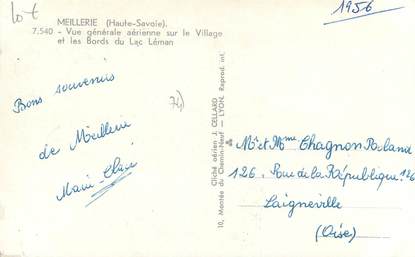 10€
MEILLERIE (Haute-Savoie).
7.540 - Vue générale aérienne sur le Village
et les Bords du Lac Léman
1956
74)
Bons souvenirs
de Meillerie
Marie-Claire
Cliché aérien J. CELLARD
10, Montée du Chemin-Neuf - LYON. Reprod. int.
Mr et Mme Chagnon Roland
126, Rue de la République 126
Laigneville
(Oise)